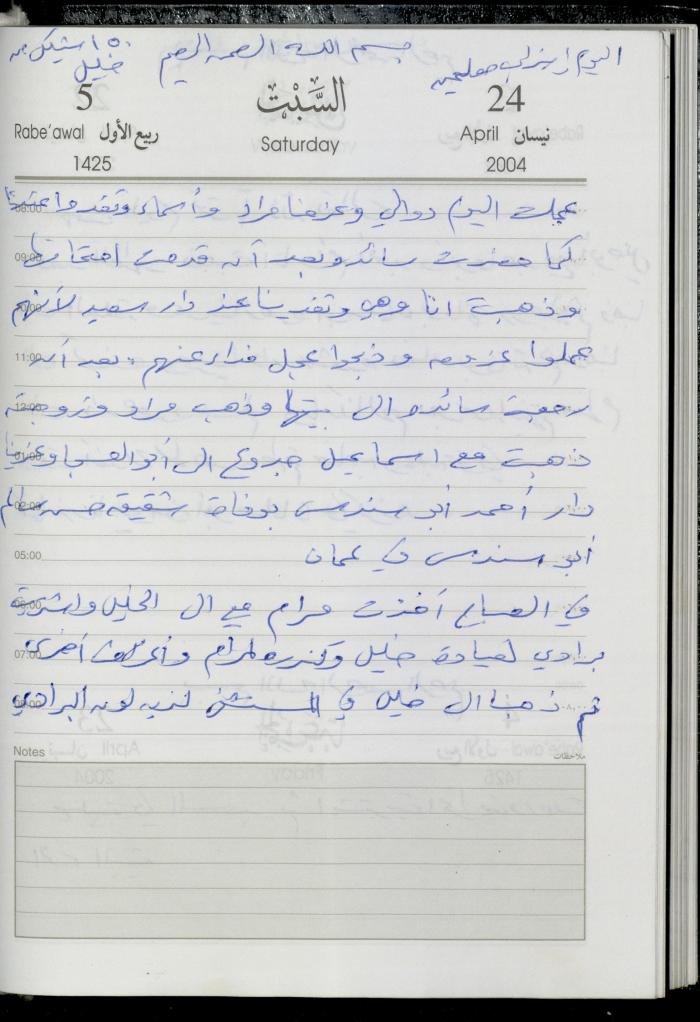 بسم الله الرحمن الرحيم
اليوم اضراب معلمين
١٥٠ شيكل من
خليل
5 السَّبْت 24
Rabe'awal ربيع الأول Saturday April نيسان
1425 2004
عملت اليوم دوالي وعزمنا مراد وأسماء وتغدوا عندنا
كما حضرت سائدة وبعد أن قدمت امتحانها
وذهبت انا وهي وتغدينا عند دار سعيد لأنهم
عملوا عزومه وذبحوا عجل فداء عنهم، بعد أن
رجعت سائده الى بيتها وذهب مراد وزوجته
ذهبت مع اسماعيل جدوع الى أبو العسجا وعزينا
دار أحمد أبو سندس بوفاة شقيقه حسن سالم
أبو سندس في عمان
في الصباح أخذت مرام مع الى الخليل واشتريت
برادي لعيادة خليل وكندره لمرام وأغراض أخرى
ثم ذهبنا الى خليل في المستشفى لنريه لون البرادي
08:00
09:00
10:00
11:00
12:00
01:00
02:00
05:00
06:00
07:00
08:00
Notes ملاحظات